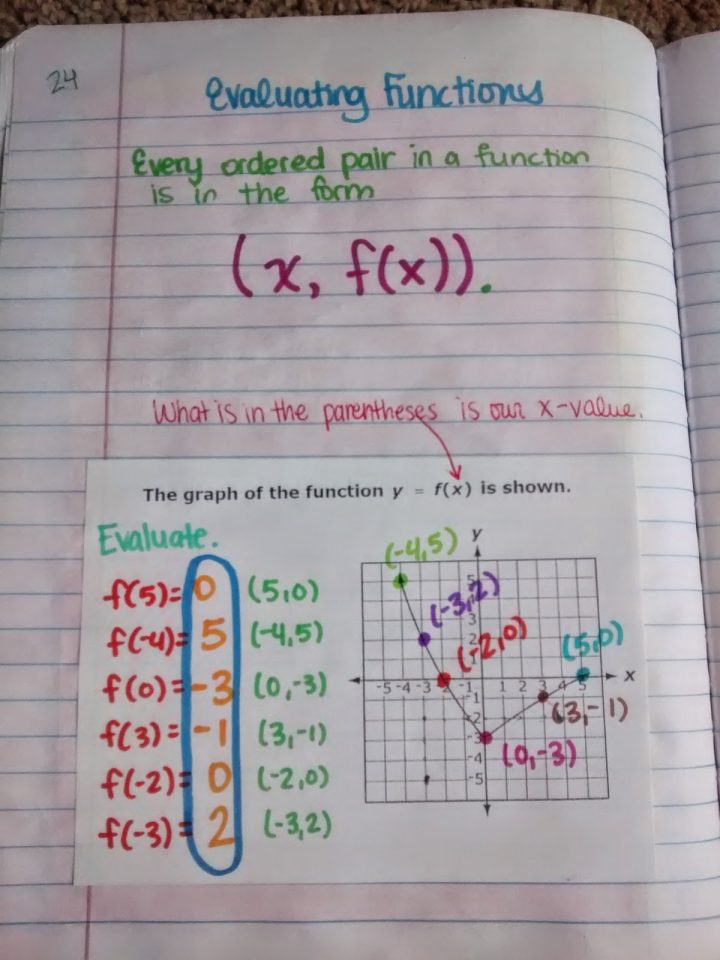 24
Evaluating Functions
Every ordered pair in a function
is in the form
(x, f(x)).
What is in the parentheses is our x-value.
The graph of the function y = f(x) is shown.
Evaluate.
f(5)=0 (5,0)
f(-4)=5 (-4,5)
f(0)=-3 (0,-3)
f(3)=-1 (3,-1)
f(-2)=0 (-2,0)
f(-3)=2 (-3,2)
y
(-4,5)
5
(-3,2)
3
2
(-2,0)
(5,0)
x
-5 -4 -3 -1 1 2 3 4 5
-1
(3,-1)
-2
-3
(0,-3)
-4
-5